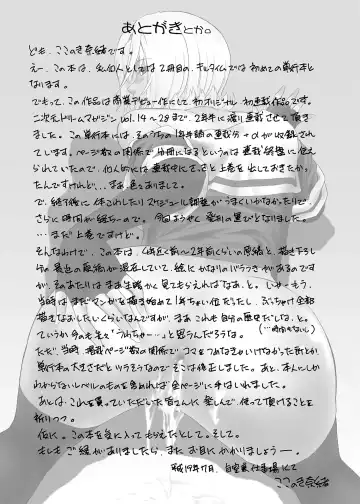 あとがきとか。
ども、ここのき奈緒です。
えー、この本は、私個人としては2冊目の、キルタイムでは初めての単行本と
なります。
でもって、この作品は商業デビュー作にして初オリジナル、初連載作品です。
二次元ドリームマガジン vol.14〜28まで、2年半に渡り連載させて頂き
ました。この単行本には、そのうちの1年半頃の連載分+αが収録され
ています。ページ数の関係で分冊になるというのは連載終盤に伝え
られていたので、個人的には連載中にさっさと上巻を出しておきたかっ
たんですけれど…まあ、色々ありまして。
で、終了後に(本これわしたり)スケジュール調整がうまくいかなかったりで、
さらに時間が経ちつーので、今回ようやく発刊の運びとなりました。
…まだ上巻ですけど。
そんなわけで、この本は、4年近く前〜2年前くらいの原稿と、描き下ろし
他の最近の原稿が混在していて、絵にかなりのバラつきがあるのです
が、そのあたりはまあ生暖かく見てもらえればなあ、と。
当時はまだマンガを描き始めて1年ちょい位だったし、ぶっちゃけ全部
描きなおしたいくらいなんですが、まあこれも自分の歴史だしな、と。
ていうか今のも先々「うわちゃー…」と思うんだろうな。
(…時間もないし)
ただ、当時、掲載ページ数の関係でコマをつめなきゃいけなかった所とか、
単行本の大きさだとツラそうなのでそこは修正しました。あと、本人にしか
わからないレベルのものも含めれば全ページに手はいれました。
あとは、これを買っていただいた皆さんに楽しんで、使って頂けることを
祈りつつ。
仮に、この本を気に入ってもらえたとして。そして。
もしもご縁がありましたら、またお目にかかりましょうー。
平成19年7月、自宅兼仕事場にて
ここのき奈緒